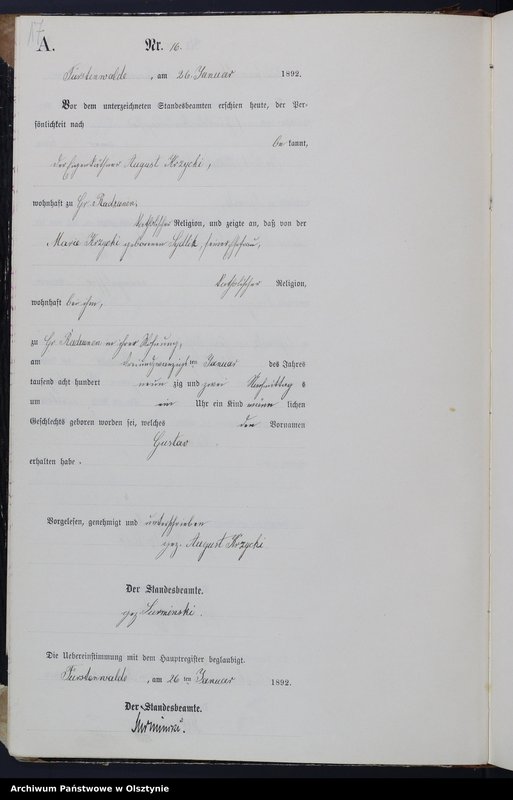 17
A.
Nr. 16.
Fürstenwalde, am 26. Januar 1892.
Vor dem unterzeichneten Standesbeamten erschien heute, der Per-
sönlichkeit nach
be kannt,
der Eigenkäthner August Krzycki,
wohnhaft zu Gr. Radzanen,
katholischer Religion, und zeigte an, daß von der
Marie Krzycki geborenen, seiner Ehefrau,
katholischer Religion,
wohnhaft bei ihm,
zu Gr. in ihrer Wohnung,
am dreiundzwanzigsten Januar des Jahres
tausend acht hundert neun zig und zwei Nachmittags
um ein Uhr ein Kind männ lichen
Geschlechts geboren worden sei, welches den Vornamen
Gustav
erhalten habe.
Vorgelesen, genehmigt und unterschrieben
gez. August Krzycki
Der Standesbeamte.
gez. Surminski.
Die Uebereinstimmung mit dem Hauptregister beglaubigt.
Fürstenwalde, am 26 ten Januar 1892.
Der Standesbeamte.
Surminski.
Archiwum Państwowe w Olsztynie